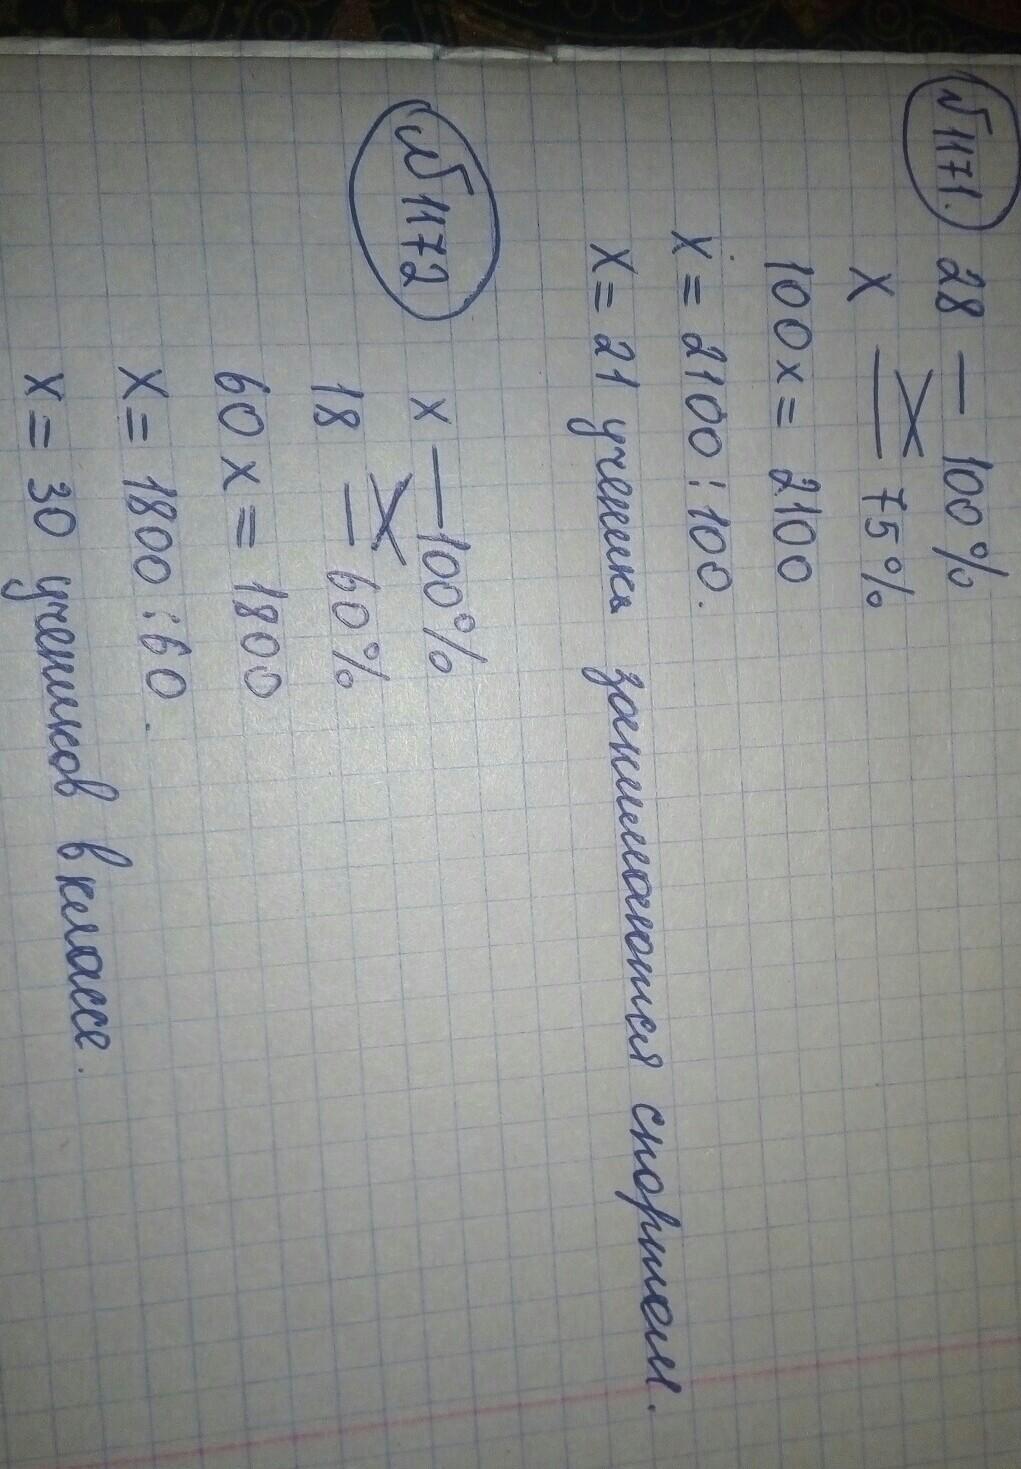 №1171. 28 — 100%
x — 75%
100x = 2100
x = 2100 : 100.
x = 21 ученика занимаются спортом.
№1172 x — 100%
18 — 60%
60x = 1800
x = 1800 : 60.
x = 30 учеников в классе.